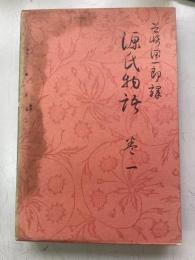 谷崎潤一郎譯
源氏物語 巻一